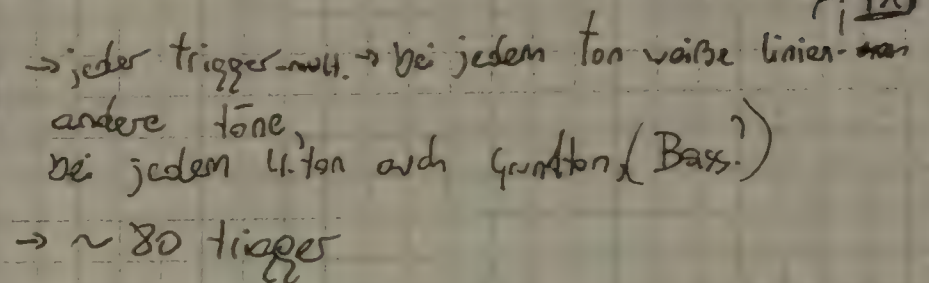 → jeder trigger → bei jedem ton weiße linien
andere töne,
bei jedem 4. ton auch Grundton (Bass?)
→ ~ 80 trigger